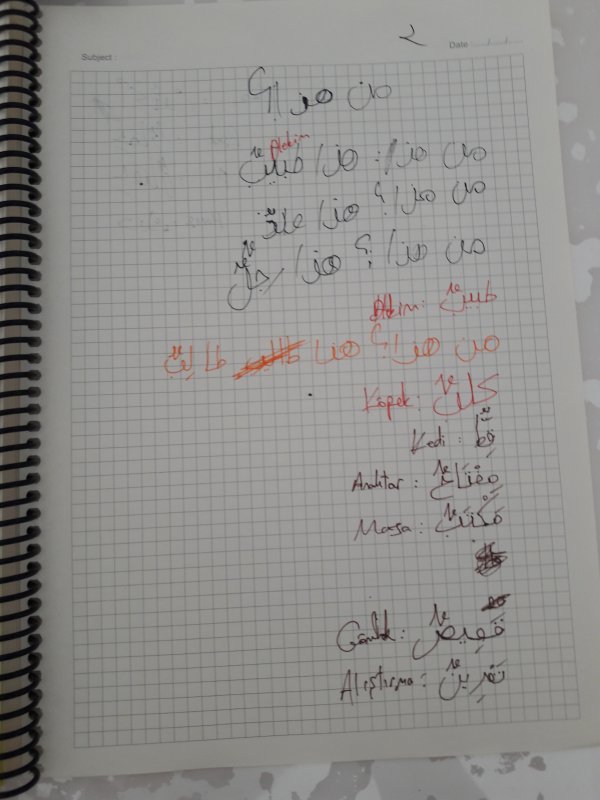 ٢
Subject :
Date : ...../...../.....
من هذا؟
Hekim
من هذا؟ هذا طبيبٌ
من هذا؟ هذا ولدٌ
من هذا؟ هذا رجلٌ
Hekim: طبيبٌ
من هذا؟ هذا طَالِبٌ
Köpek: كلبٌ
Kedi : قِطٌّ
Anahtar : مِفْتَاحٌ
Masa : مَكْتَبٌ
Gömlek : قَمِيصٌ
Alıştırma : تَمْرِينٌ